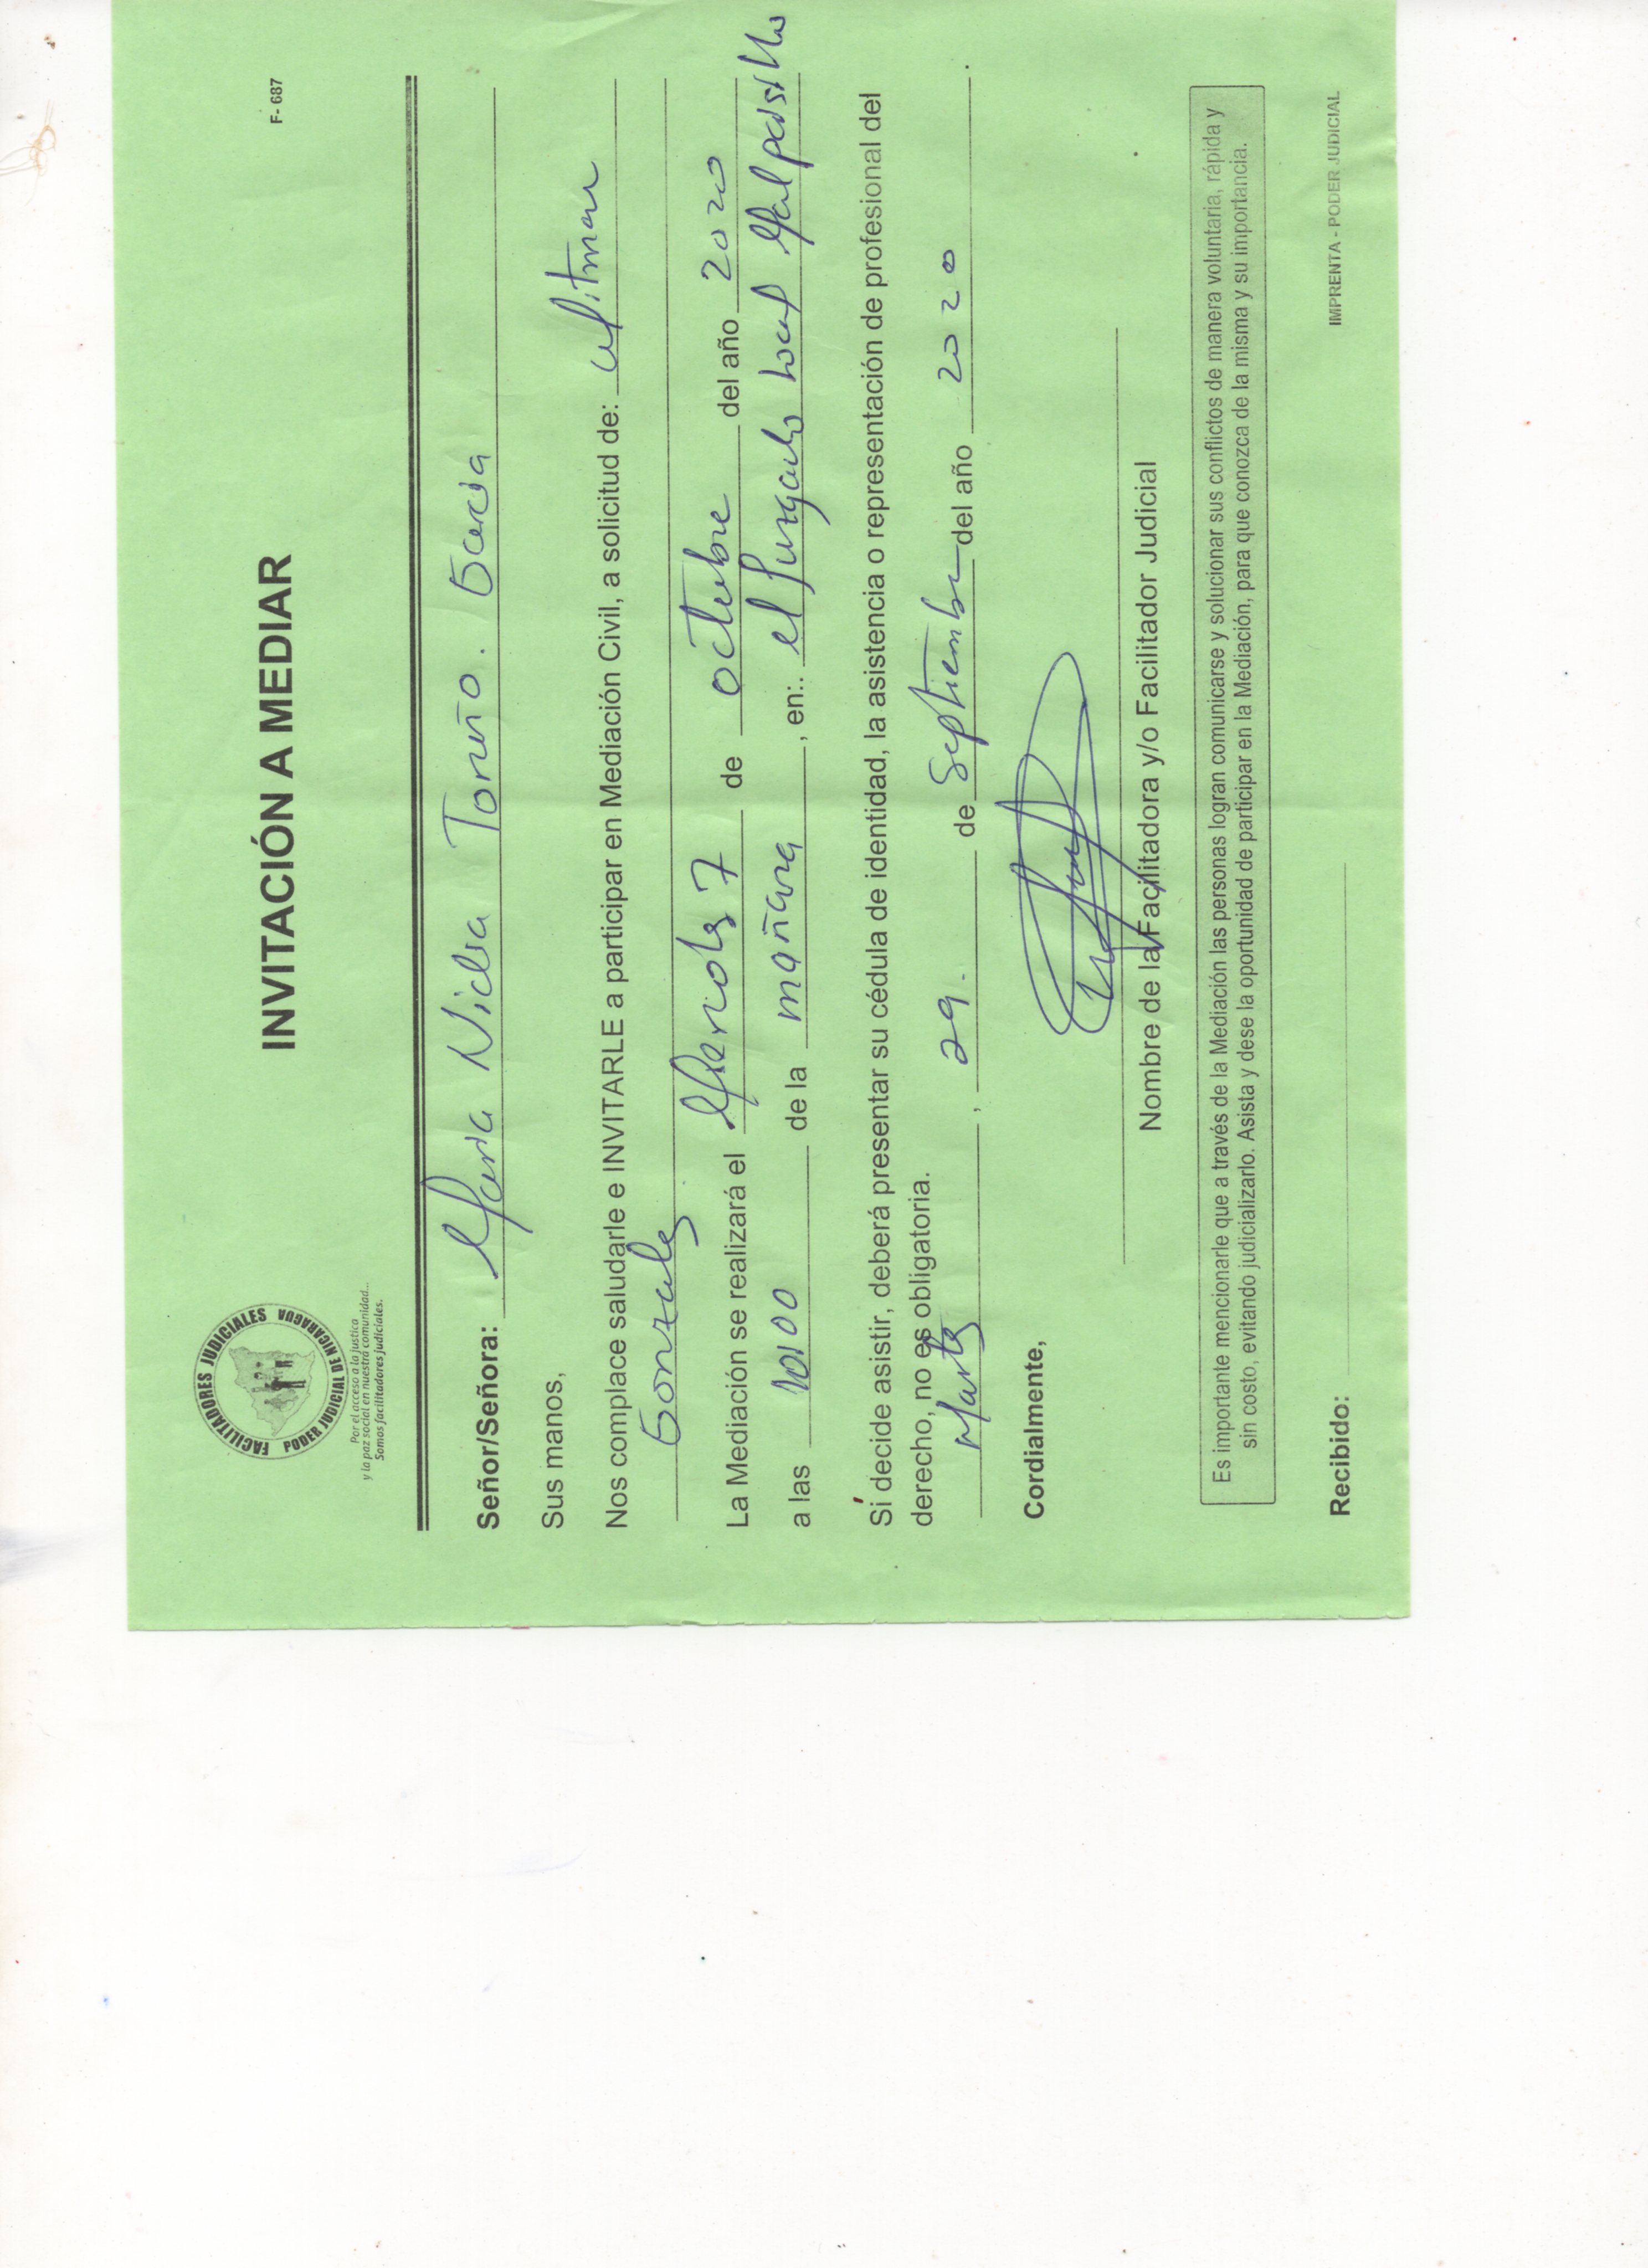 FACILITADORES JUDICIALES
PODER JUDICIAL DE NICARAGUA
Por el acceso a la justicia
y la paz social en nuestra comunidad...
Somos facilitadores judiciales.
F- 687
INVITACIÓN A MEDIAR
Señor/Señora: Maria Nidia Toruño. Garcia
Sus manos,
Nos complace saludarle e INVITARLE a participar en Mediación Civil, a solicitud de:
Gonzales
La Mediación se realizará el Miercoles 7 de octubre del año 2020
a las 10:00 de la mañana, en:. el Juzgado Local Malpaisillo
Sí decide asistir, deberá presentar su cédula de identidad, la asistencia o representación de profesional del
derecho, no es obligatoria.
Martes, 29. de Septiembre del año 2020.
Cordialmente,
Nombre de la Facilitadora y/o Facilitador Judicial
Es importante mencionarle que a través de la Mediación las personas logran comunicarse y solucionar sus conflictos de manera voluntaria, rápida y
sin costo, evitando judicializarlo. Asista y dese la oportunidad de participar en la Mediación, para que conozca de la misma y su importancia.
Recibido:
IMPRENTA - PODER JUDICIAL